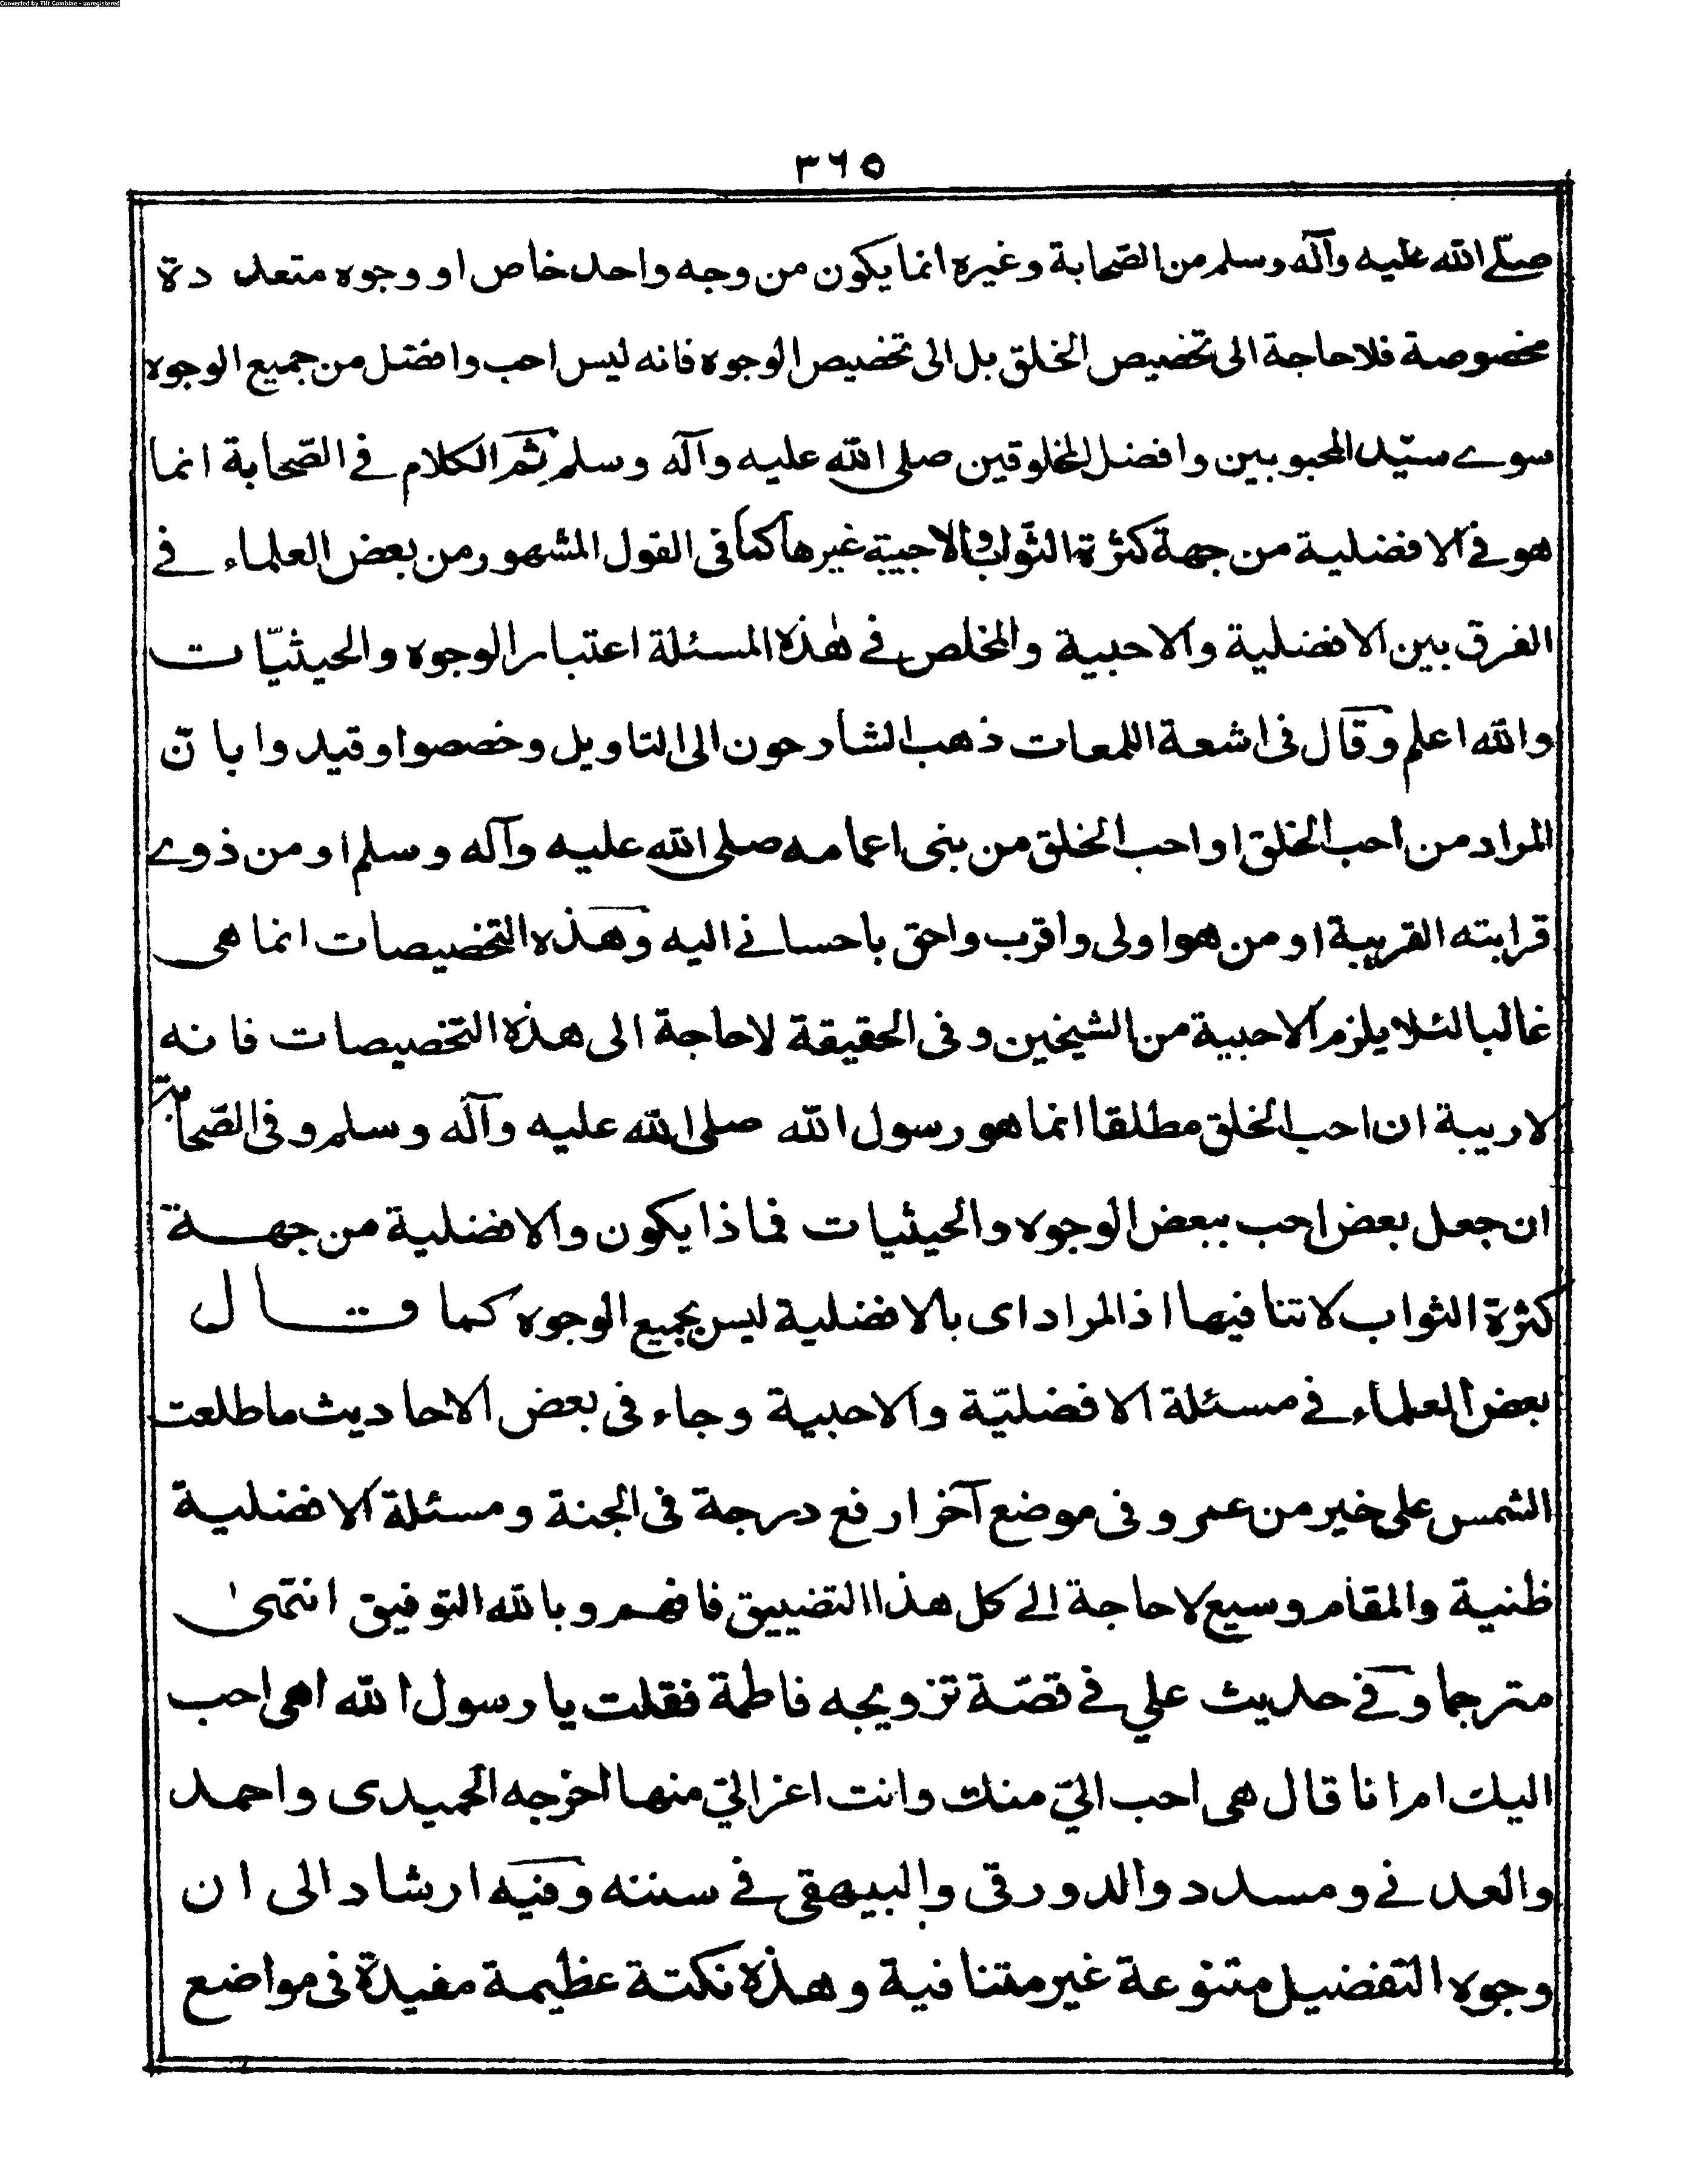 Converted by Tiff Combine - unregistered
٣٦٥
صلّے الله علیه وآله وسلم من الصّحابة وغیره انما یکون من وجه واحد خاص او وجوه متعددة
مخصوصة فلا حاجة الی تخصیص الخلق بل الی تخصیص الوجوه فانه لیس احب وافضل من جمیع الوجوه
سوے سیّد المحبوبین وافضل المخلوقین صلی الله علیه وآله وسلم ثم الکلام فے الصّحابة انما
هو فے الافضلیة من جهة کثرة الثواب والاحبیة غیرها کما فی القول المشهور من بعض العلماء فے
الفرق بین الافضلیة والاحبیة والمخلص فے هٰذه المسئلة اعتبار الوجوه والحیثیّات
والله اعلم وقال فی اشعة اللمعات ذهب الشارحون الی التاویل وخصصوا وقیدوا بانّ
المراد من احب الخلق او احب الخلق من بنی اعمامه صلی الله علیه وآله وسلم او من ذوے
قرابته القریبة او من هو اولی واقرب واحق باحسانے الیه وهذه التخصیصات انما هی
غالبا لئلا یلزم الاحبیة من الشیخین وفی الحقیقة لا حاجة الی هذه التخصیصات فانه
لا ریبة ان احب الخلق مطلقا انما هو رسول الله صلی الله علیه وآله وسلم وفی الصّحابة
ان جعل بعض احب ببعض الوجوه والحیثیات فماذا یکون والافضلیة من جهة
کثرة الثواب لا تنافیها اذ المراد ای بالافضلیة لیس بجمیع الوجوه کما قال
بعض العلماء فے مسئلة الافضلیّة والاحبیة وجاء فی بعض الاحادیث ما طلعت
الشمس علی خیر من عمر وفی موضع آخر ارفع درجة فی الجنة ومسئلة الافضلیة
ظنیة والمقام وسیع لا حاجة الے کل هذا التضییق فافهم وبالله التوفیق انتهیٰ
مترجما وفے حدیث علي فے قصّة تزویجه فاطمة فقلت یا رسول الله اهی احب
الیک ام انا قال هی احب الیّ منک وانت اعز الیّ منها اخرجه الحمیدی واحمد
والعدنے ومسدد والدورقی والبیهقی فے سننه وفیه ارشاد الی ان
وجوه التفضیل متنوعة غیر متنافیة وهذه نکتة عظیمة مفیدة فی مواضع